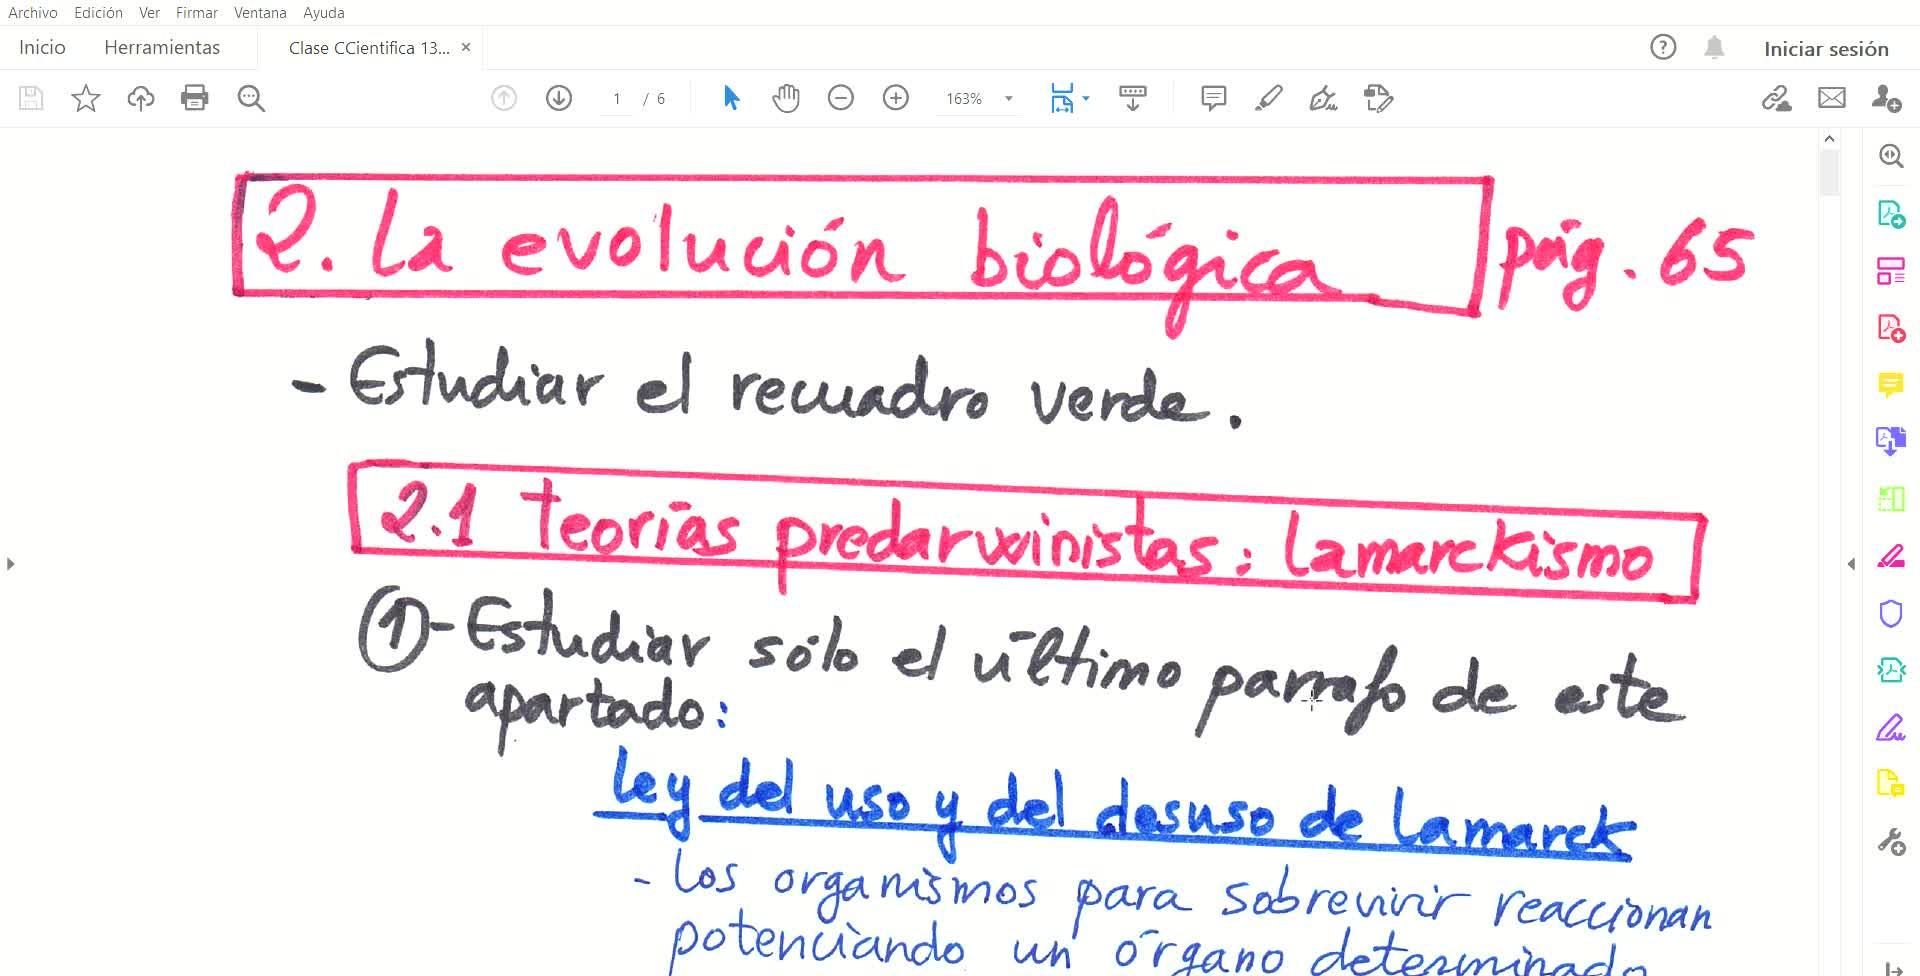 Archivo Edición Ver Firmar Ventana Ayuda
Inicio Herramientas Clase CCientifica 13... × ? Iniciar sesión
1 / 6 163%
2. La evolución biológica pág. 65
- Estudiar el recuadro verde.
2.1 Teorías predarwinistas: Lamarckismo
① - Estudiar sólo el último parrafo de este
apartado:
Ley del uso y del desuso de Lamarck
- Los organismos para sobrevivir reaccionan
potenciando un órgano determinado